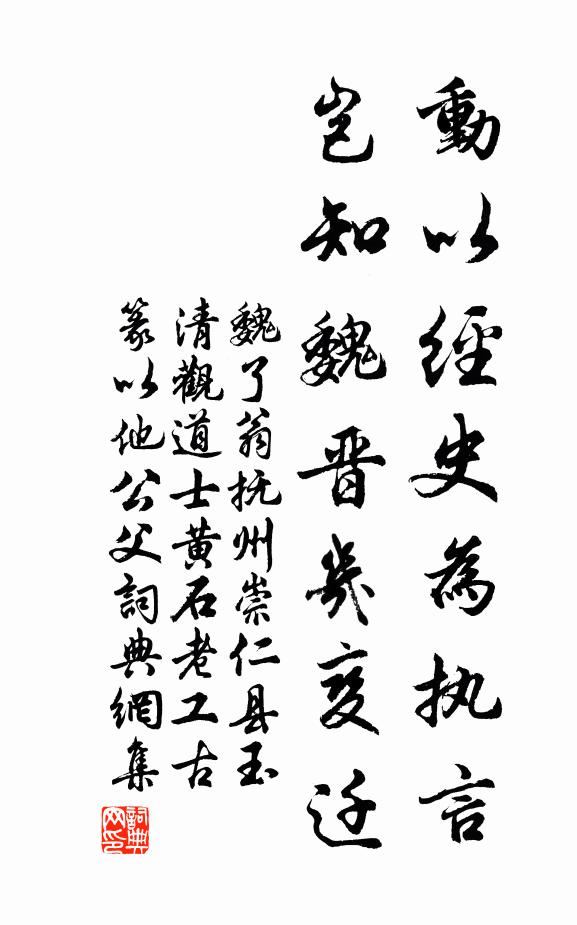 動以經史為执言
岂知魏晋幾变迁
魏了翁抚州崇仁县玉
清觀道士黄石老工古
篆以他公父詞典網集
詞典网印